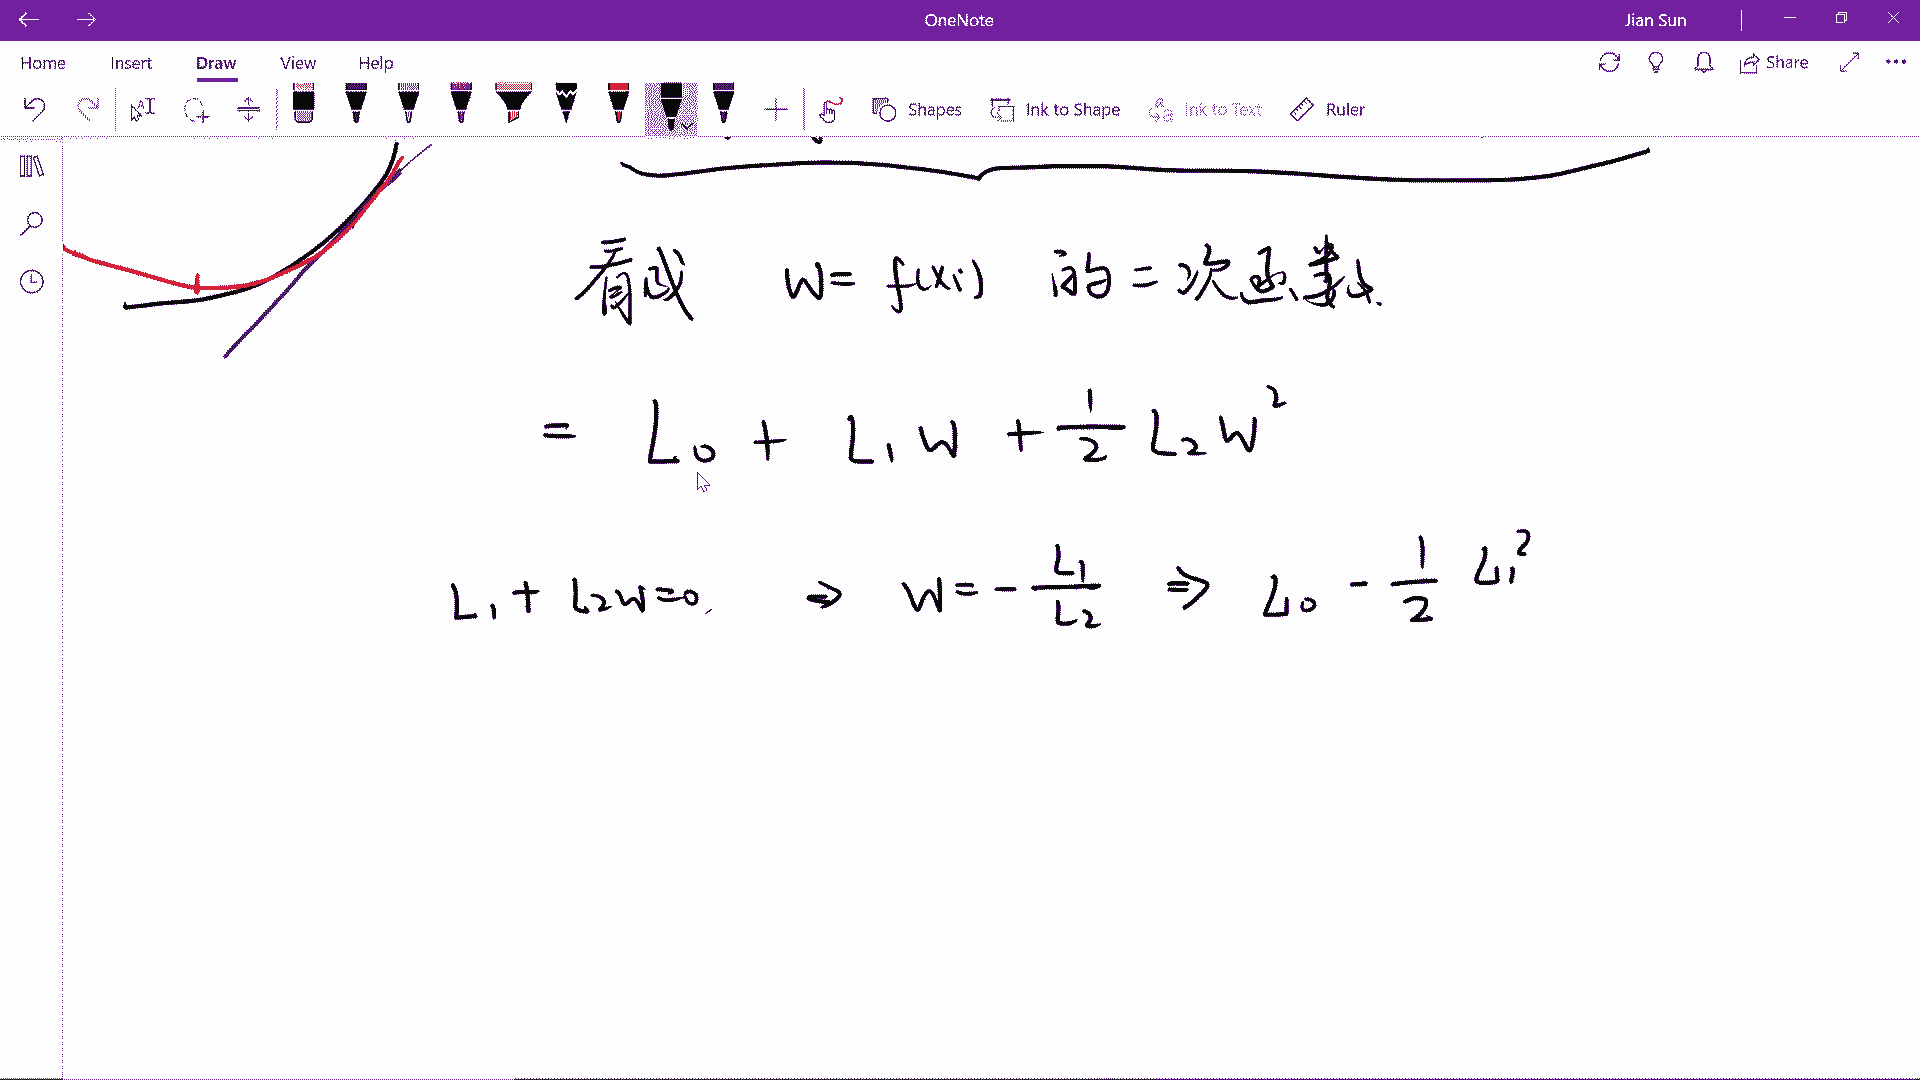 OneNote
Jian Sun
Home Insert Draw View Help
Share
Shapes Ink to Shape Ink to Text Ruler
看成 W = f(xi) 的二次函数.
= L₀ + L₁ W + 1/2 L₂ W²
L₁ + L₂W=0. ⇒ W = - L₁/L₂ ⇒ L₀ - 1/2 L₁²